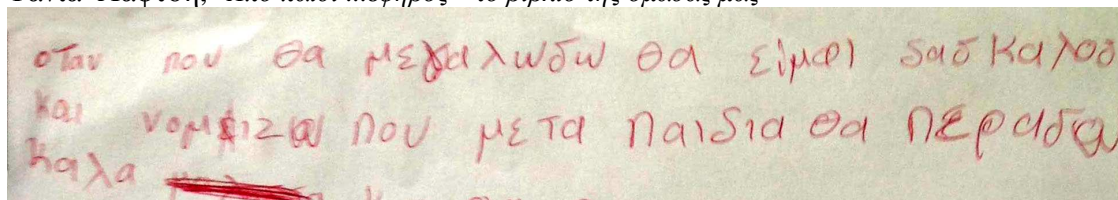 οταν που θα μεγαλωδω θα είμαι δασκαλοσ
και νομιζω που μετα παιδια θα περαδω
καλα